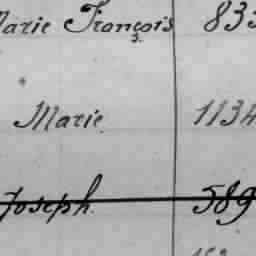 Marie François 833
Marie 1134
Joseph 589